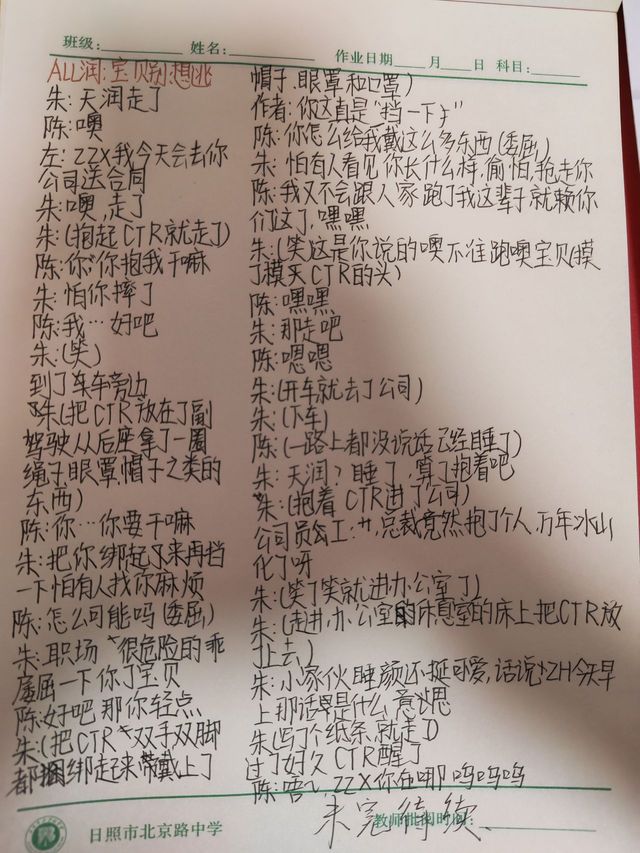 班级: 姓名: 作业日期 月 日 科目:
ALL润:宝贝别想逃
朱:天润走了
陈:噢
左:ZZX我今天会去你
公司送合同
朱:噢,走了
朱:(抱起CTR就走了)
陈:你你抱我干嘛
朱:怕你摔了
陈:我…好吧
朱:(笑)
到了车车旁边
朱(把CTR放在了副
驾驶从后座拿了一圈
绳子眼罩帽子之类的
东西)
陈:你…你要干嘛
朱:把你绑起来再挡
一下怕有人找你麻烦
陈:怎么可能吗(委屈)
朱:职场很危险的乖
屈屈一下你了宝贝
陈:好吧那你轻点
朱:(把CTR双手双脚
都捆绑起来带戴上了
帽子.眼罩和口罩)
作者:你这真是"挡一下"
陈:你怎么给我戴这么多东西(委屈)
朱:怕有人看见你长什么样,偷怕,抢走你
陈:我又不会跟人家跑了我这辈子就赖你
们这了,嘿嘿
朱:(笑这是你说的噢不准跑噢宝贝(摸
了摸 CTR的头)
陈:嘿嘿
朱:那走吧
陈:嗯嗯
朱:(开车就去了公司)
朱:(下车)
陈:(一路上都没说话已经睡了)
朱:天润?睡了,算了抱着吧
朱:(抱着CTR进了公司)
公司员工:艹,总裁竟然抱了个人,万年冰山
化了呀
朱:(笑了笑就进办公室了)
朱:(走进办公室的休息室的床上把CTR放
上去)
朱:小家伙睡颜还挺可爱,话说SZH今天早
上那话是什么意思
朱(写了个纸条就走了)
过了好久CTR醒了
陈:唔~,ZZX你在哪呜呜呜
未完待续、
日照市北京路中学 教师批阅时间: